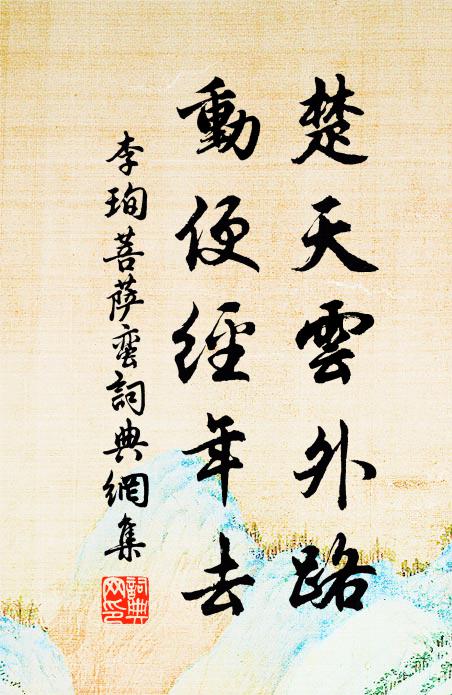 楚天雲外路
動便經年去
李珣菩薩蠻詞典網集
詞典網印